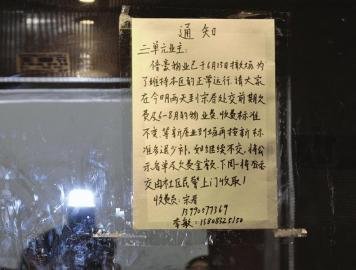 通知
三单元业主:
信豪物业已于6月15日撤场为
了维持本区的正常运行,请大家
在今明两天到宗居处交前期欠
费及6-8月的物业费,收费标准
不变,等新居业到场再按新标
准多退少补,如继续不交,将公
示各单元欠费金额,下周一将公示
交由社区民警上门收取!
收费员:宗居
15808325150